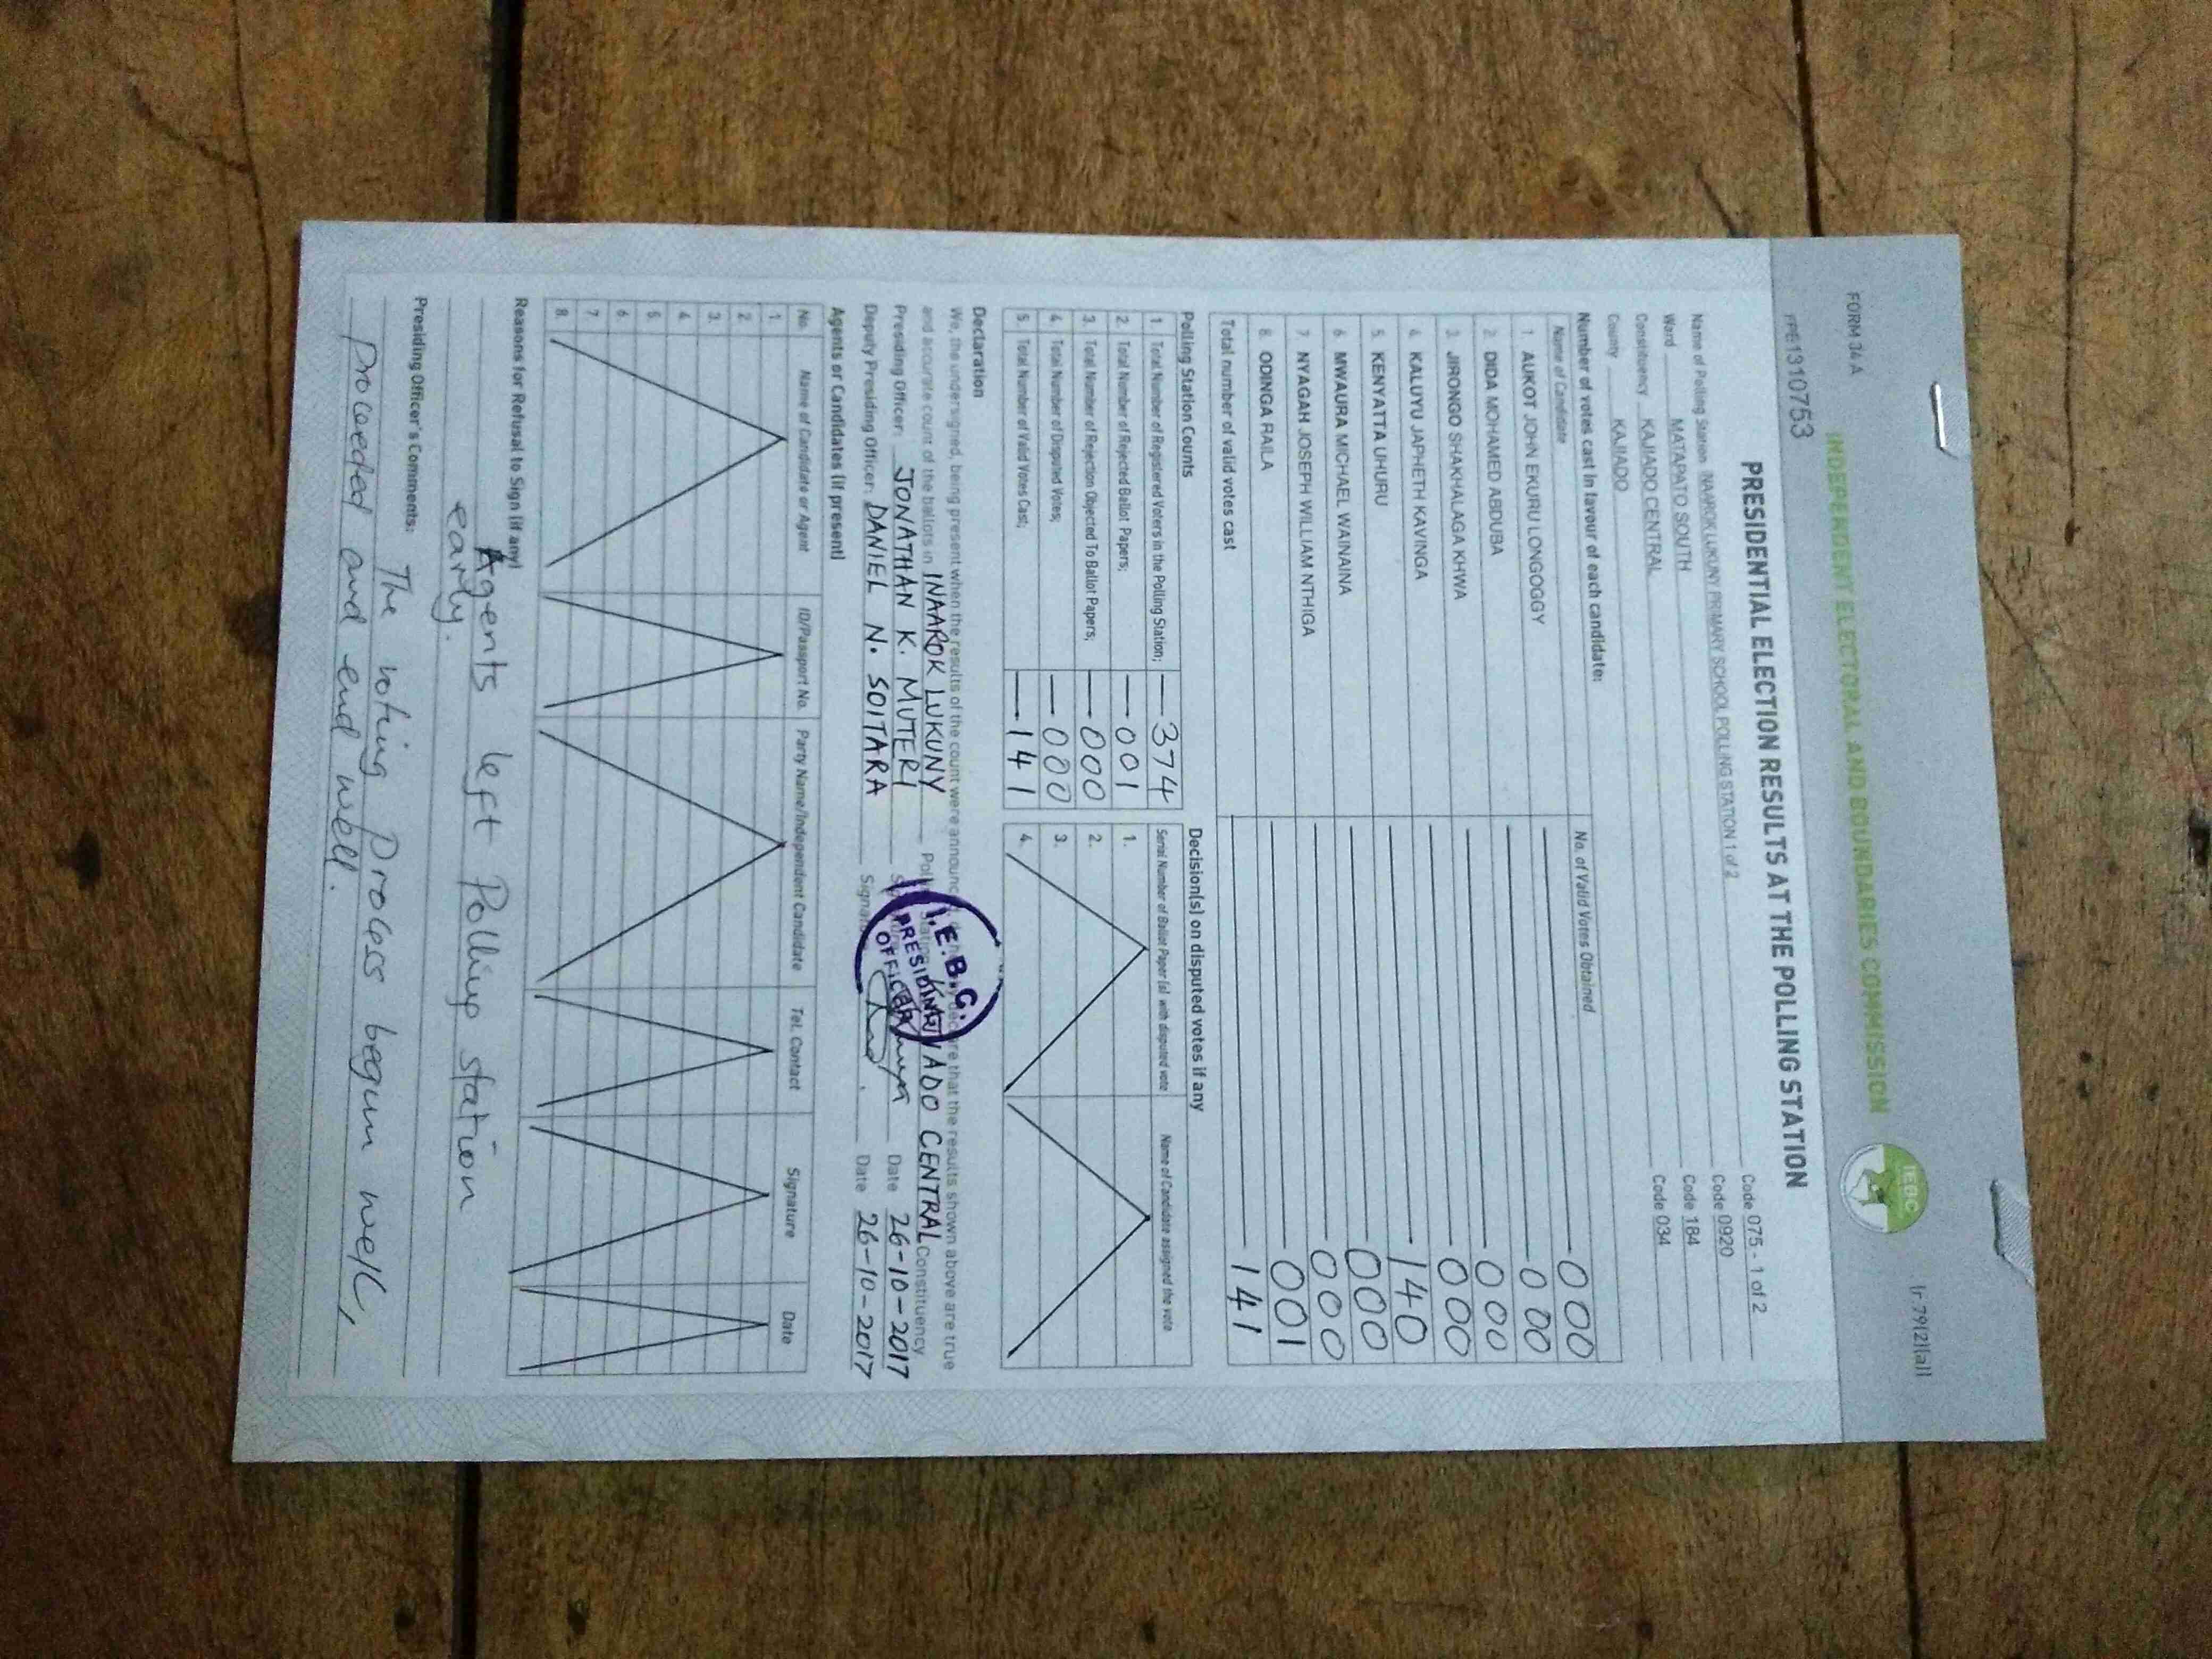 FORM 34A
(r.79(2)(a))
INDEPENDENT ELECTORAL AND BOUNDARIES COMMISSION
IEBC
1310753
PRESIDENTIAL ELECTION RESULTS AT THE POLLING STATION
Name of Polling Station INAAROK LUKUNY PRIMARY SCHOOL POLLING STATION 1 of 2 Code 075 - 1 of 2
Ward MATAPATO SOUTH Code 0920
Constituency KAJIADO CENTRAL Code 184
County KAJIADO Code 034
Number of votes cast in favour of each candidate:
Name of Candidate No. of Valid Votes Obtained
1 AUKOT JOHN EKURU LONGOGGY 000
2 DIDA MOHAMED ABDUBA 000
3 JIRONGO SHAKHALAGA KHWA 000
4 KALUYU JAPHETH KAVINGA 000
5 KENYATTA UHURU 140
6 MWAURA MICHAEL WAINAINA 000
7 NYAGAH JOSEPH WILLIAM NTHIGA 000
8 ODINGA RAILA 001
Total number of valid votes cast 141
Polling Station Counts
1 Total Number of Registered Voters in the Polling Station; 374
2 Total Number of Rejected Ballot Papers; 001
3 Total Number of Rejection Objected To Ballot Papers; 000
4 Total Number of Disputed Votes; 000
5 Total Number of Valid Votes Cast; 141
Decision(s) on disputed votes if any
Serial Number of Ballot Paper (s) with disputed vote Name of Candidate assigned the vote
1.
2.
3.
4.
Declaration
We, the undersigned, being present when the results of the count were announced that the results shown above are true
and accurate count of the ballots in INAAROK LUKUNY CENTRAL Constituency.
Presiding Officer: JONATHAN K. MUTERI Date 26-10-2017
Deputy Presiding Officer: DANIEL N. SOITARA Signature Date 26-10-2017
I.E.B.C.
PRESIDING
OFFICER
Agents or Candidates (if present)
No. Name of Candidate or Agent ID/Passport No. Party Name/Independent Candidate Tel. Contact Signature Date
1.
2.
3.
4.
5.
6.
7.
8.
Reasons for Refusal to Sign (if any)
Agents left Polling station
early.
Presiding Officer's Comments:
The voting process begun well,
proceeded and end well.